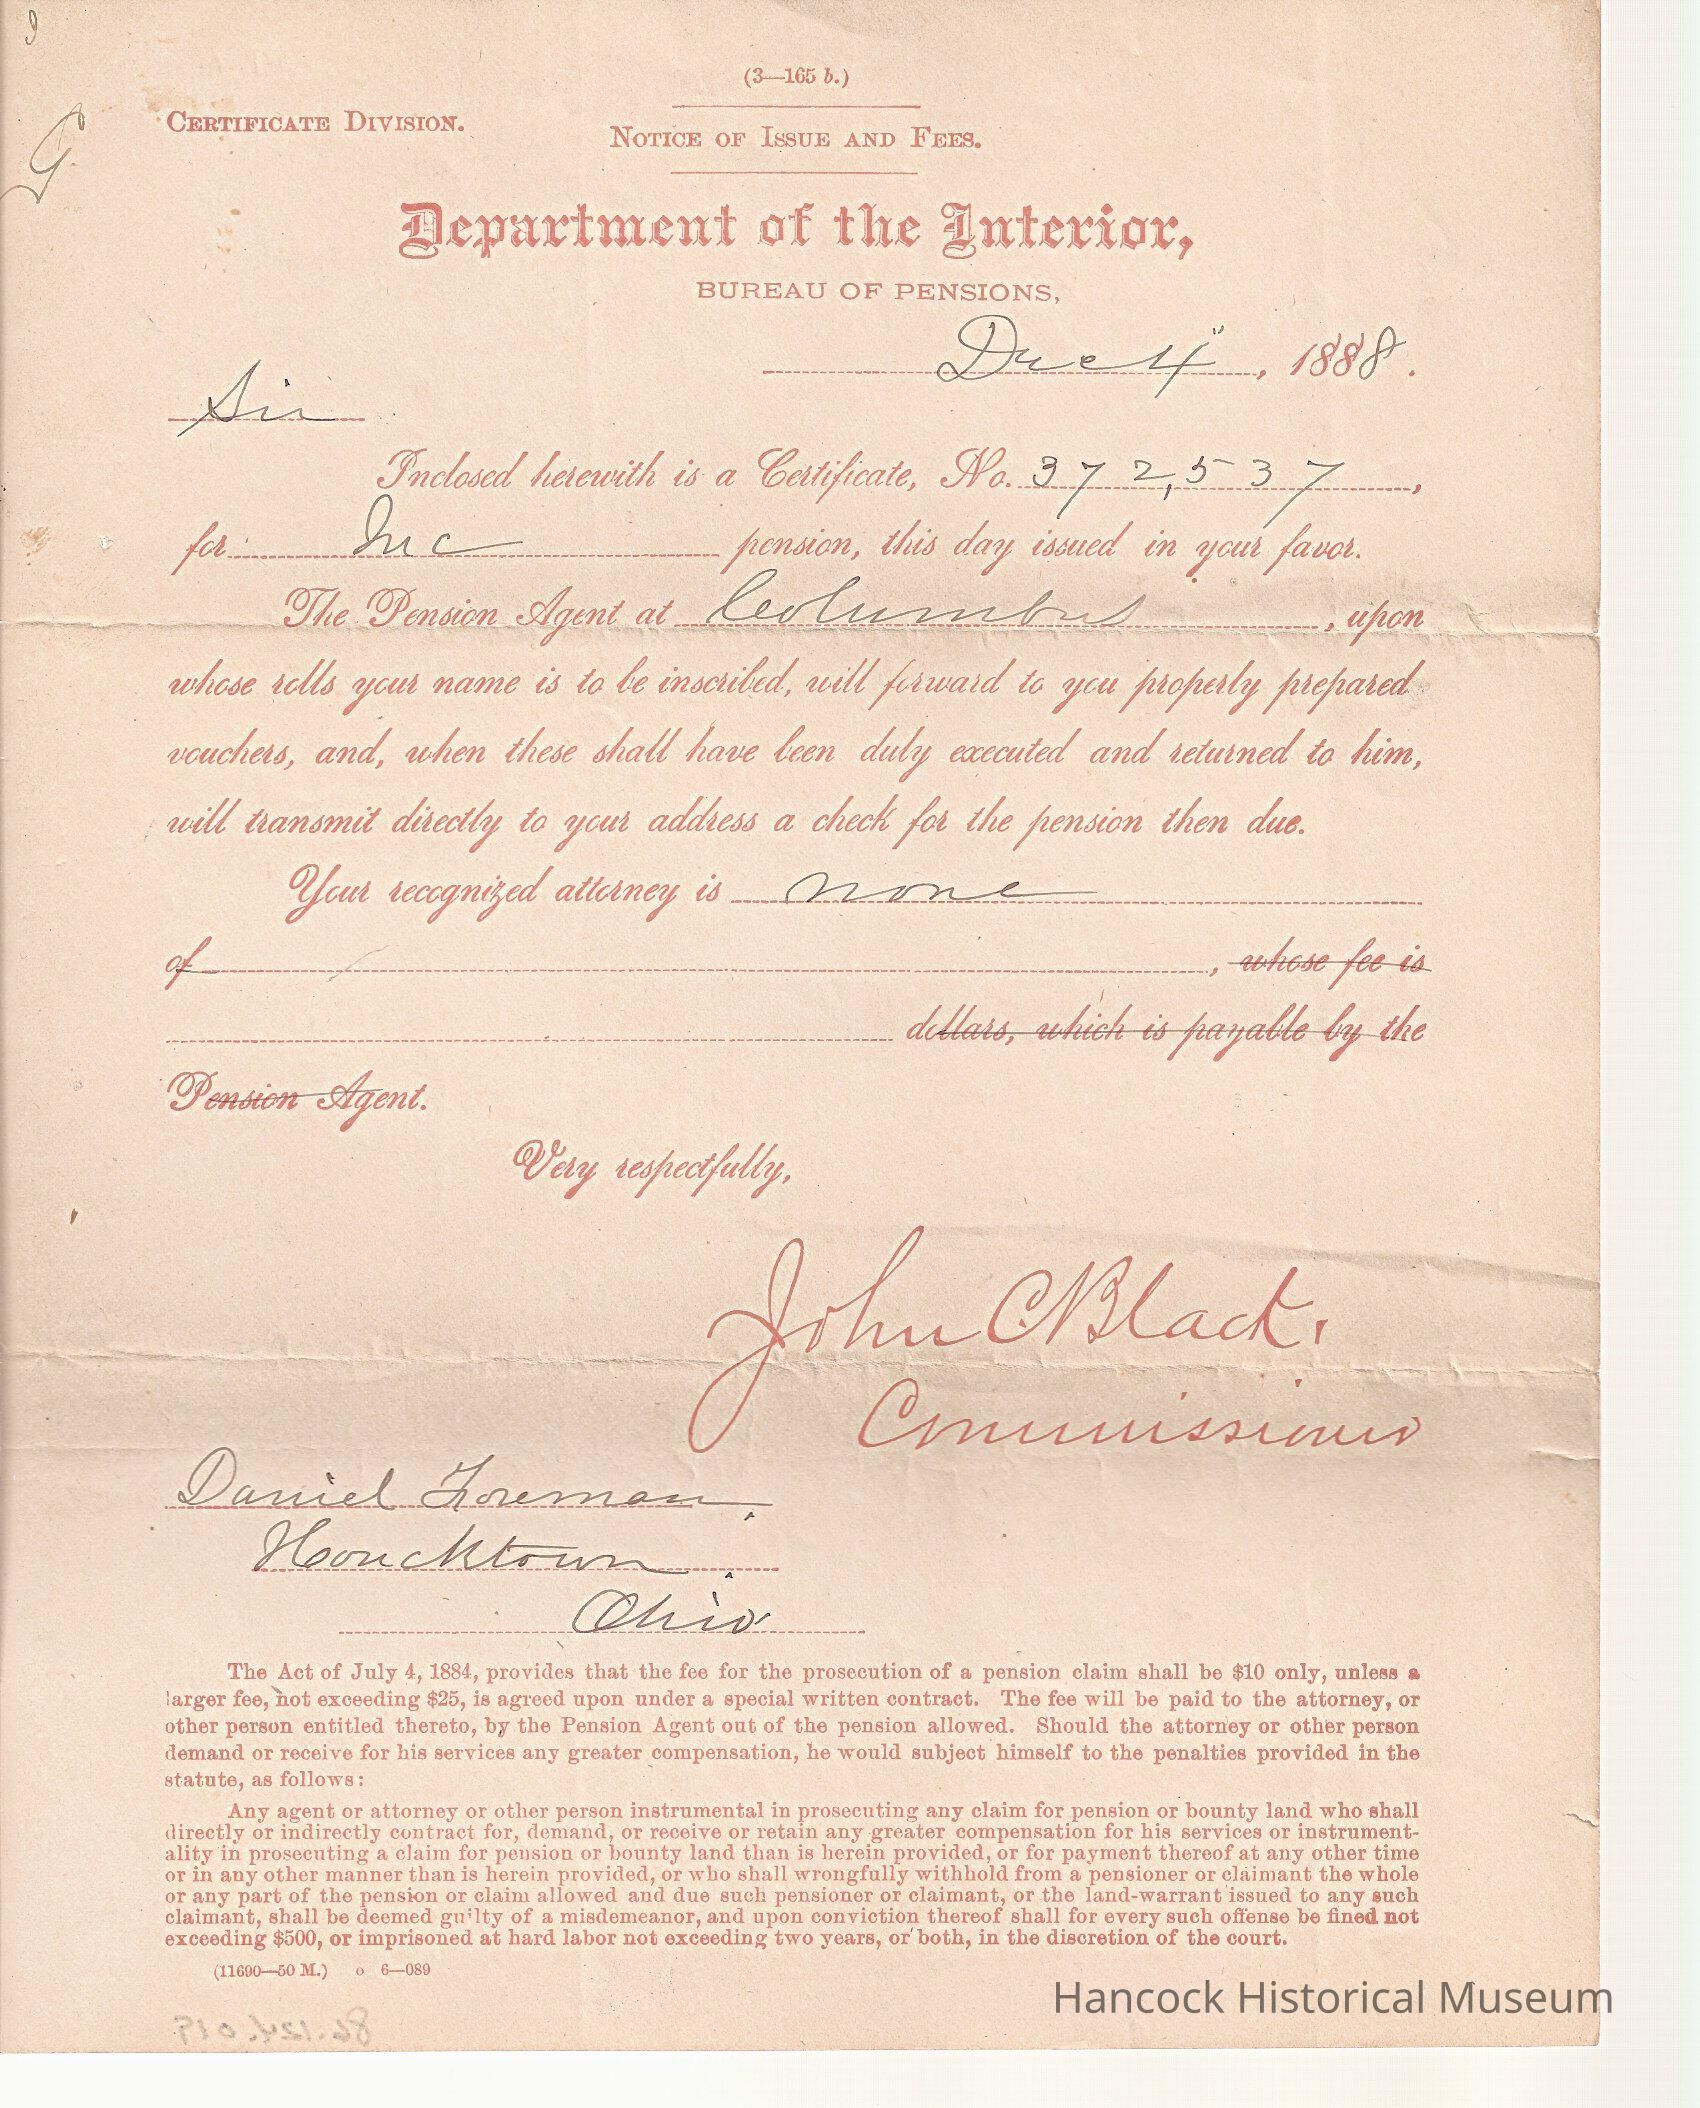 (3—165 b.)
CERTIFICATE DIVISION.
NOTICE OF ISSUE AND FEES.
Department of the Interior,
BUREAU OF PENSIONS,
Dec 4", 1888.
Sir
Inclosed herewith is a Certificate, No. 372,537,
for Inc pension, this day issued in your favor.
The Pension Agent at Columbus, upon
whose rolls your name is to be inscribed, will forward to you properly prepared
vouchers, and, when these shall have been duly executed and returned to him,
will transmit directly to your address a check for the pension then due.
Your recognized attorney is none
of , whose fee is
dollars, which is payable by the
Pension Agent.
Very respectfully,
John C Black,
Commissioner
Daniel Foreman,
Houcktown,
Ohio
The Act of July 4, 1884, provides that the fee for the prosecution of a pension claim shall be $10 only, unless a
larger fee, not exceeding $25, is agreed upon under a special written contract. The fee will be paid to the attorney, or
other person entitled thereto, by the Pension Agent out of the pension allowed. Should the attorney or other person
demand or receive for his services any greater compensation, he would subject himself to the penalties provided in the
statute, as follows:
Any agent or attorney or other person instrumental in prosecuting any claim for pension or bounty land who shall
directly or indirectly contract for, demand, or receive or retain any greater compensation for his services or instrument-
ality in prosecuting a claim for pension or bounty land than is herein provided, or for payment thereof at any other time
or in any other manner than is herein provided, or who shall wrongfully withhold from a pensioner or claimant the whole
or any part of the pension or claim allowed and due such pensioner or claimant, or the land-warrant issued to any such
claimant, shall be deemed guilty of a misdemeanor, and upon conviction thereof shall for every such offense be fined not
exceeding $500, or imprisoned at hard labor not exceeding two years, or both, in the discretion of the court.
(11690—50 M.) o 6—089
Hancock Historical Museum